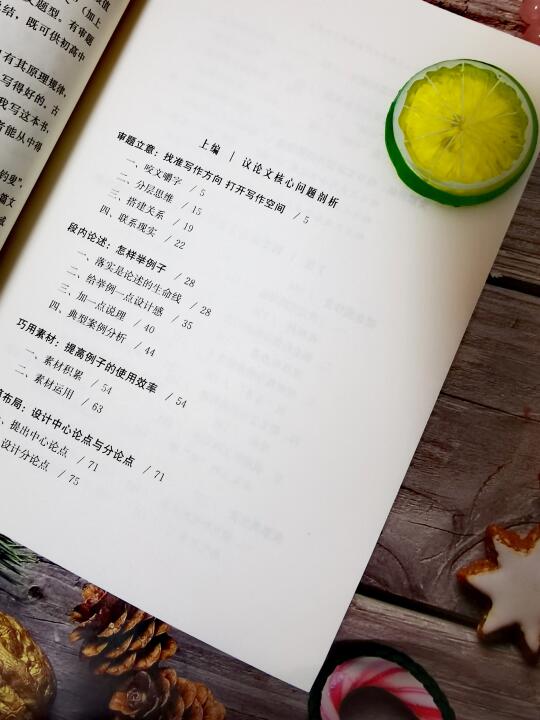 文题型。有审题
总结，既可供初高中
有其原理规律，
写得好的。古
我写这本书，
者能从中得
钓度”，
篇文
上编 | 议论文核心问题剖析
审题立意：找准写作方向 打开写作空间 / 5
一、咬文嚼字 / 5
二、分层思维 / 15
三、搭建关系 / 19
四、联系现实 / 22
段内论述：怎样举例子 / 28
一、落实是论述的生命线 / 28
二、给举例一点设计感 / 35
三、加一点说理 / 40
四、典型案例分析 / 44
巧用素材：提高例子的使用效率 / 54
一、素材积累 / 54
二、素材运用 / 63
布局：设计中心论点与分论点 / 71
提出中心论点 / 71
设计分论点 / 75